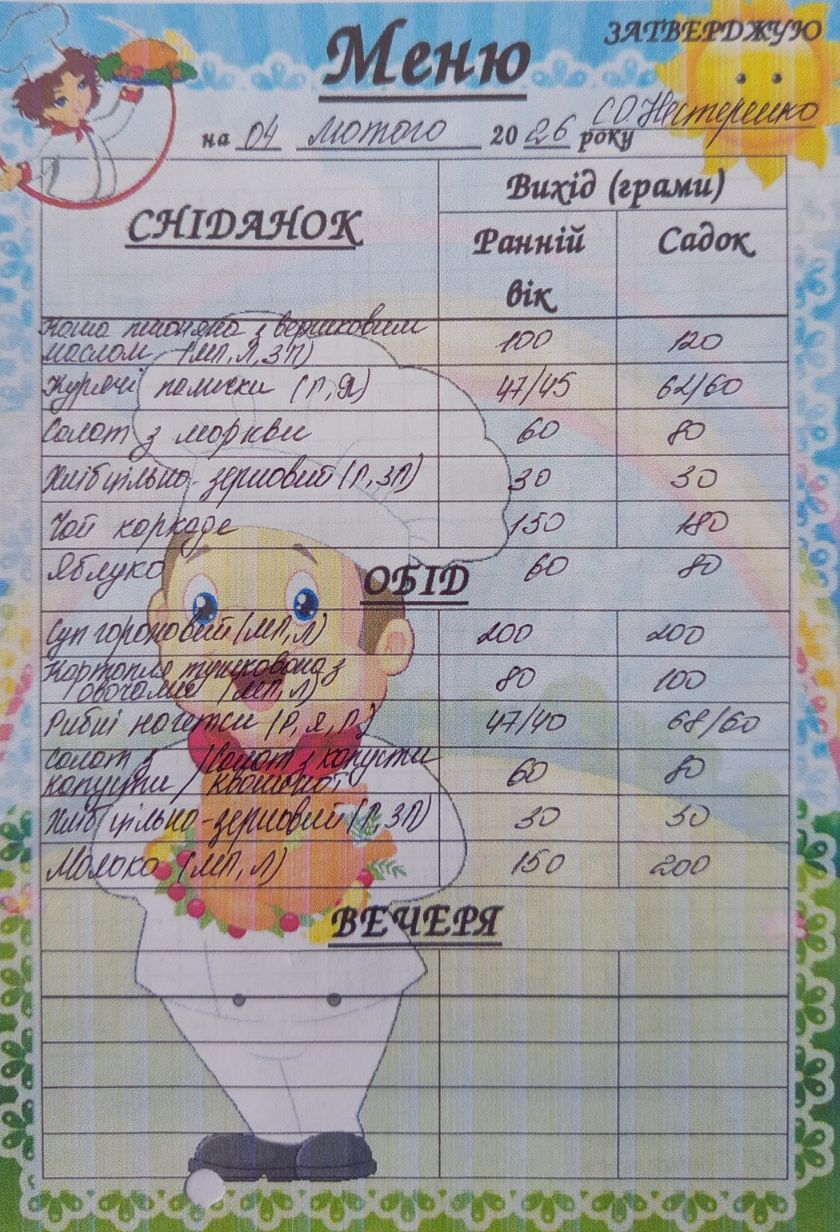 ЗАТВЕРДЖУЮ
Меню
С.О. Нестеренко
на 04 лютого 2026 року
СНІДАНОК
Вихід (грами)
Ранній вік
Садок
Каша пшоняна з вершковим
маслом (МП, Л, ЗП) 100 120
Курячі палички (П, Я) 47/45 62/60
Салат з моркви 60 80
Хліб цільно-зерновий (П, ЗП) 30 30
Чай каркаде 150 180
Яблуко 60 80
ОБІД
Суп гороховий (МП, Л) 200 200
Картопля тушкована з
овочами (МП, Л) 80 100
Рибні нагетси (Р, Я, П) 47/40 68/60
Салат з / Салат з капусти
капусти / квашеної 60 80
Хліб цільно-зерновий (П, ЗП) 30 30
Молоко (МП, Л) 150 200
ВЕЧЕРЯ